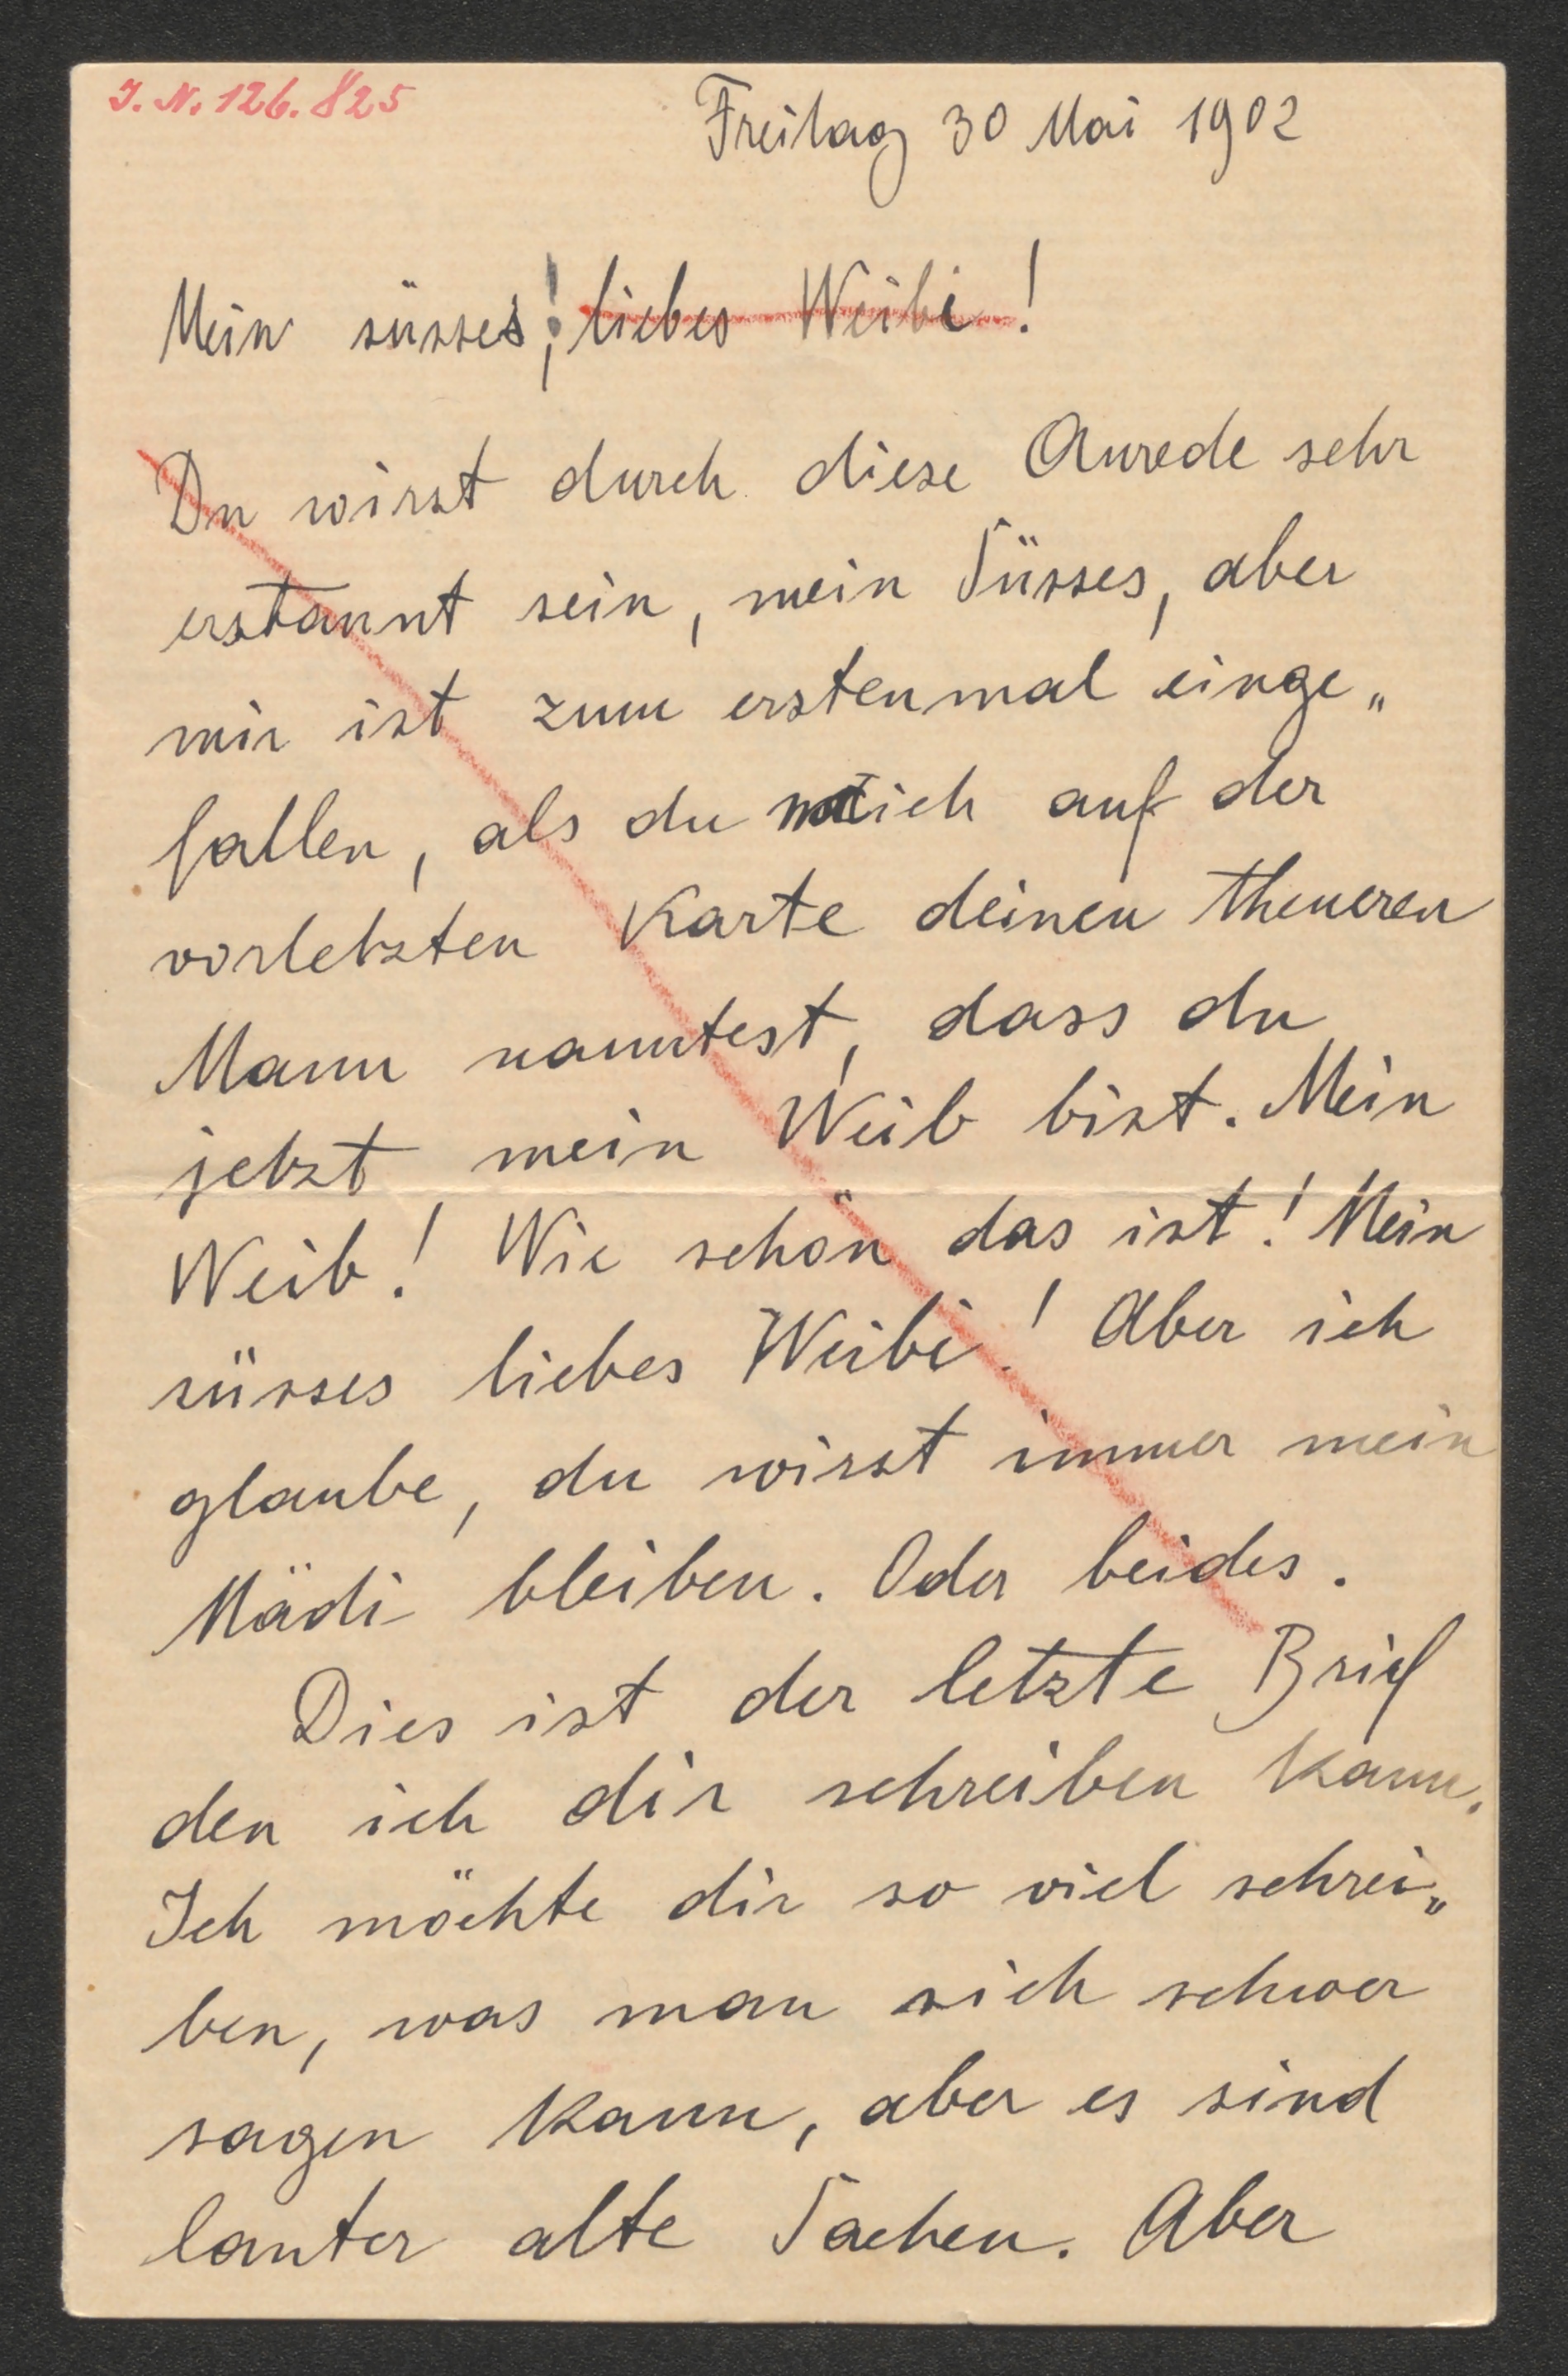 J. N. 126.825
Freitag 30 Mai 1902
Mein süsses, ! liebes Weibi !
Du wirst durch diese Anrede sehr
erstaunt sein, mein Süsses, aber
mir ist zum erstenmal einge„
fallen, als du mich auf der
vorletzten Karte deinen theueren
Mann nanntest, dass du
jetzt mein Weib bist. Mein
Weib! Wie schön das ist! Mein
süsses liebes Weibi! Aber ich
glaube, du wirst immer mein
Mädi bleiben. Oder beides.
Dies ist der letzte Brief
den ich dir schreiben kann.
Ich möchte dir so viel schrei„
ben, was man sich schwer
sagen kann, aber es sind
lauter alte Sachen. Aber